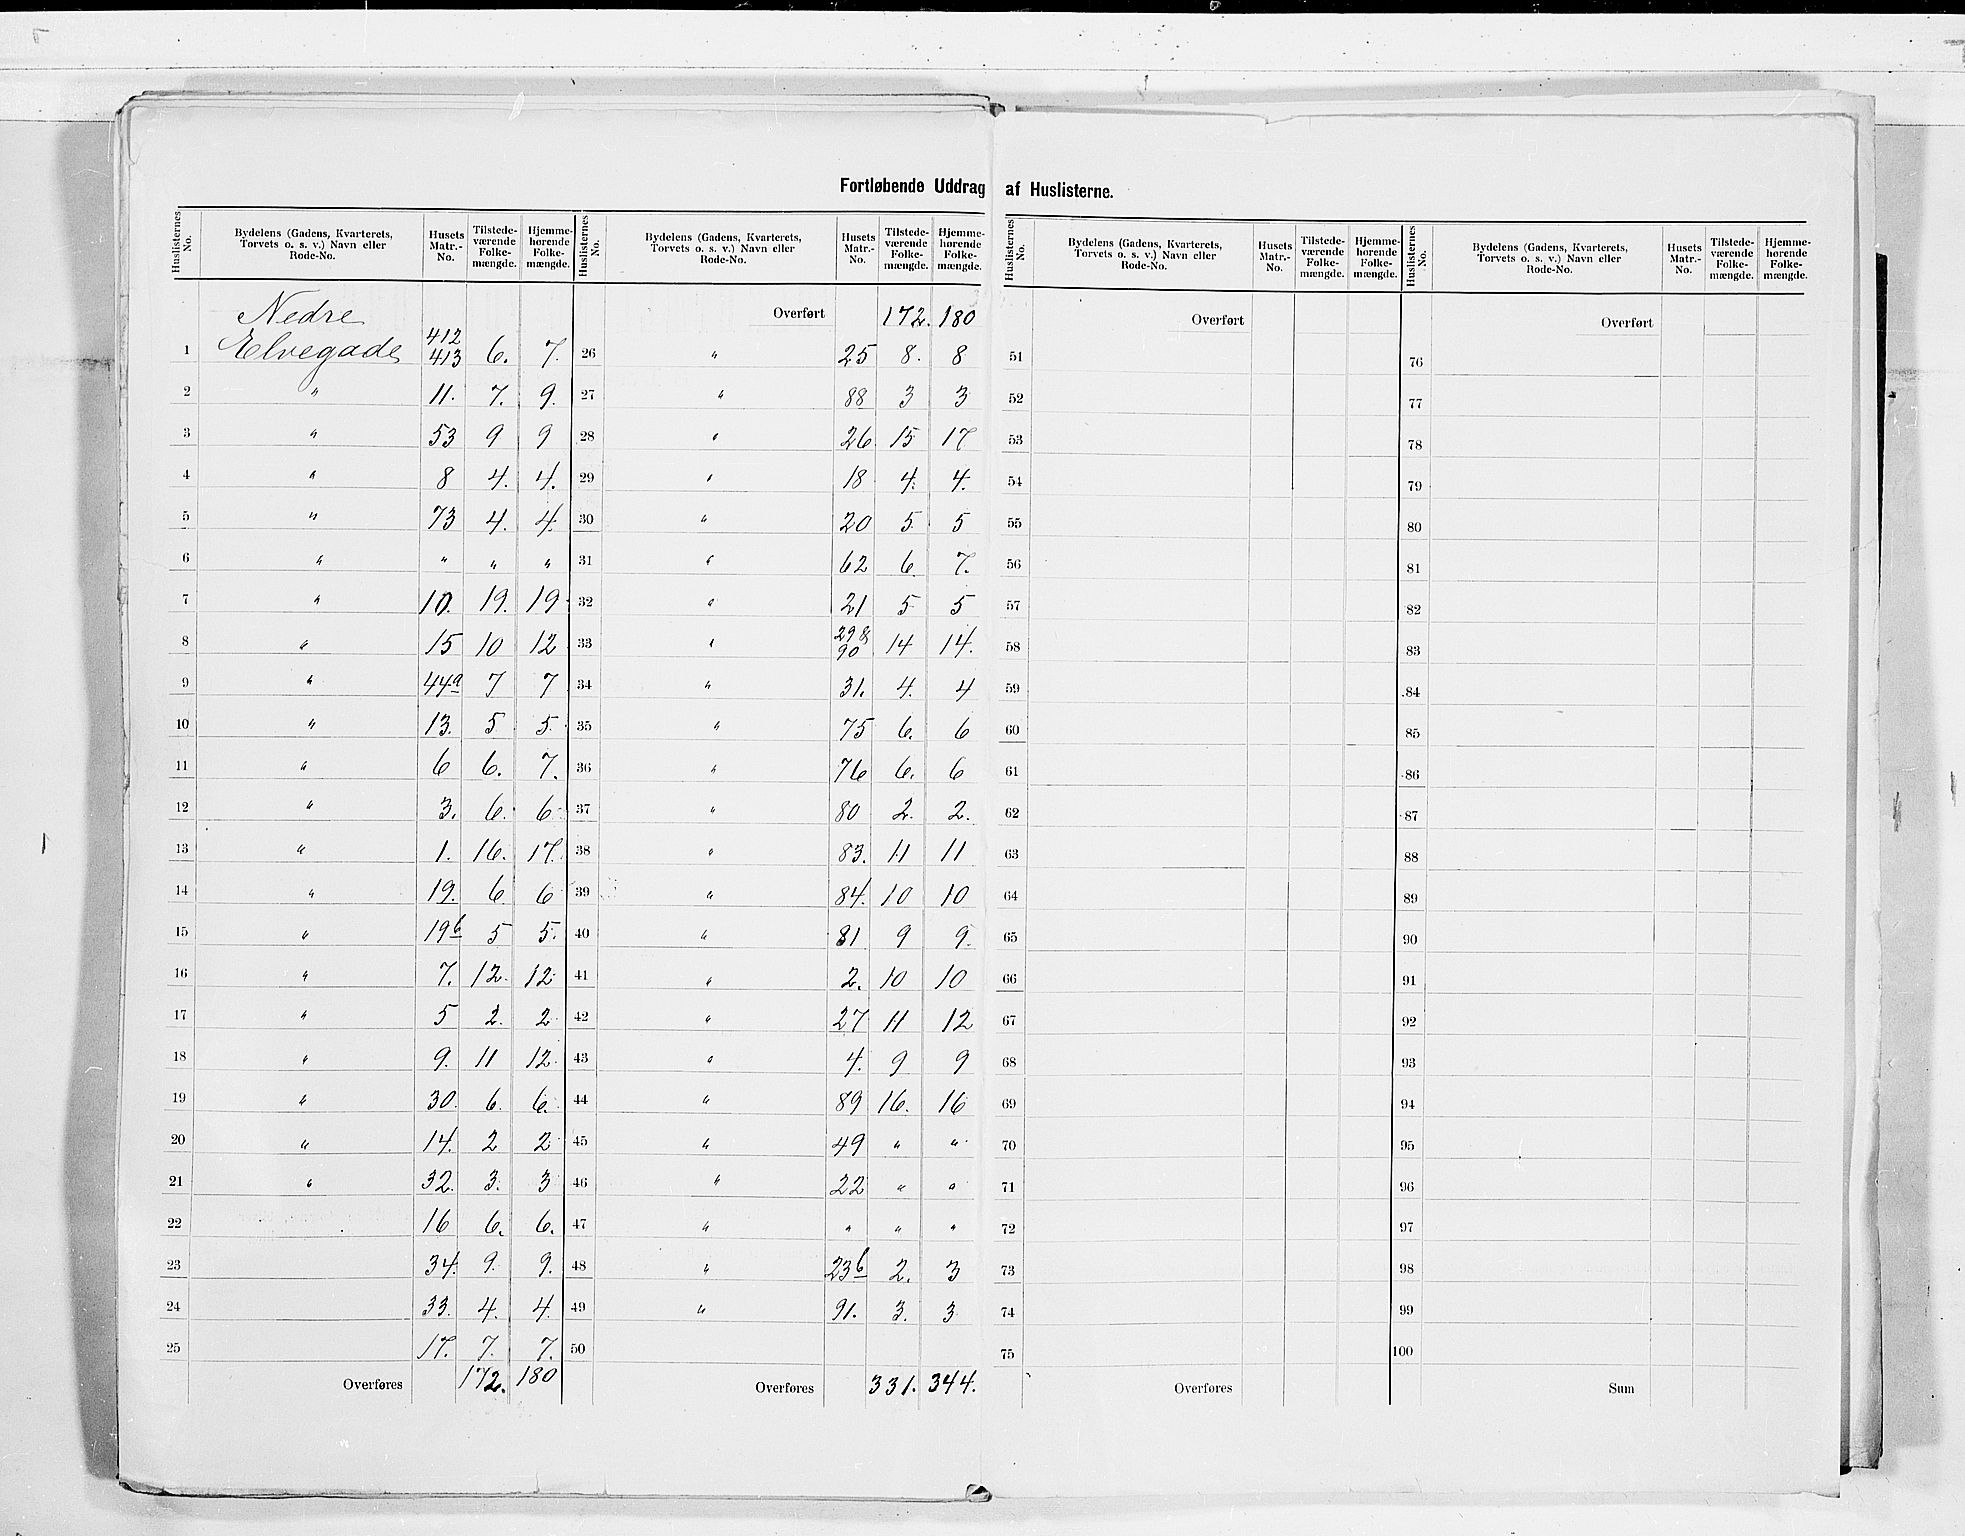 Fortløbende Uddrag af Huslisterne.
Huslisternes No. Bydelens (Gadens, Kvarterets, Torvets o. s. v.) Navn eller Rode-No. Husets Matr.-No. Tilstedeværende Folkemængde. Hjemmehørende Folkemængde.
Nedre
412
1 Elvegade 413 6. 7.
2 " 11. 7. 9.
3 " 53 9 9
4 " 8 4. 4.
5 " 73 4. 4.
6 " " " "
7 " 10. 19. 19
8 " 15 10 12
9 " 44a 7 7
10 " 13. 5 5
11 " 6 6. 7.
12 " 3. 6. 6
13 " 1. 16. 17.
14 " 19. 6. 6
15 " 19b 5 5.
16 " 7. 12. 12
17 " 5 2. 2
18 " 9. 11 12
19 " 30. 6. 6.
20 " 14. 2 2
21 " 32. 3. 3
22 16 6. 6.
23 34. 9. 9.
24 33. 4. 4.
25 17. 7. 7.
Overføres 172. 180
Huslisternes No. Bydelens (Gadens, Kvarterets, Torvets o. s. v.) Navn eller Rode-No. Husets Matr.-No. Tilstedeværende Folkemængde. Hjemmehørende Folkemængde.
Overført 172. 180
26 " 25 8. 8
27 " 88 3 3
28 " 26 15 17
29 " 18 4. 4.
30 " 20 5 5
31 " 62 6. 7.
32 " 21 5 5
298
33 " 90 14 14.
34 " 31. 4. 4
35 " 75 6. 6
36 " 76 6. 6
37 " 80 2. 2.
38 " 83. 11 11
39 " 84. 10 10
40 " 81 9 9.
41 " 2. 10 10
42 " 27 11 12
43 " 4. 9 9
44 " 89 16. 16
45 " 49 " "
46 " 22 " "
47 " " " "
48 " 23b 2. 3
49 " 91. 3. 3
50
Overføres 331. 344.
Huslisternes No. Bydelens (Gadens, Kvarterets, Torvets o. s. v.) Navn eller Rode-No. Husets Matr.-No. Tilstedeværende Folkemængde. Hjemmehørende Folkemængde.
Overført
51
52
53
54
55
56
57
58
59
60
61
62
63
64
65
66
67
68
69
70
71
72
73
74
75
Overføres
Huslisternes No. Bydelens (Gadens, Kvarterets, Torvets o. s. v.) Navn eller Rode-No. Husets Matr.-No. Tilstedeværende Folkemængde. Hjemmehørende Folkemængde.
Overført
76
77
78
79
80
81
82
83
84
85
86
87
88
89
90
91
92
93
94
95
96
97
98
99
100
Sum